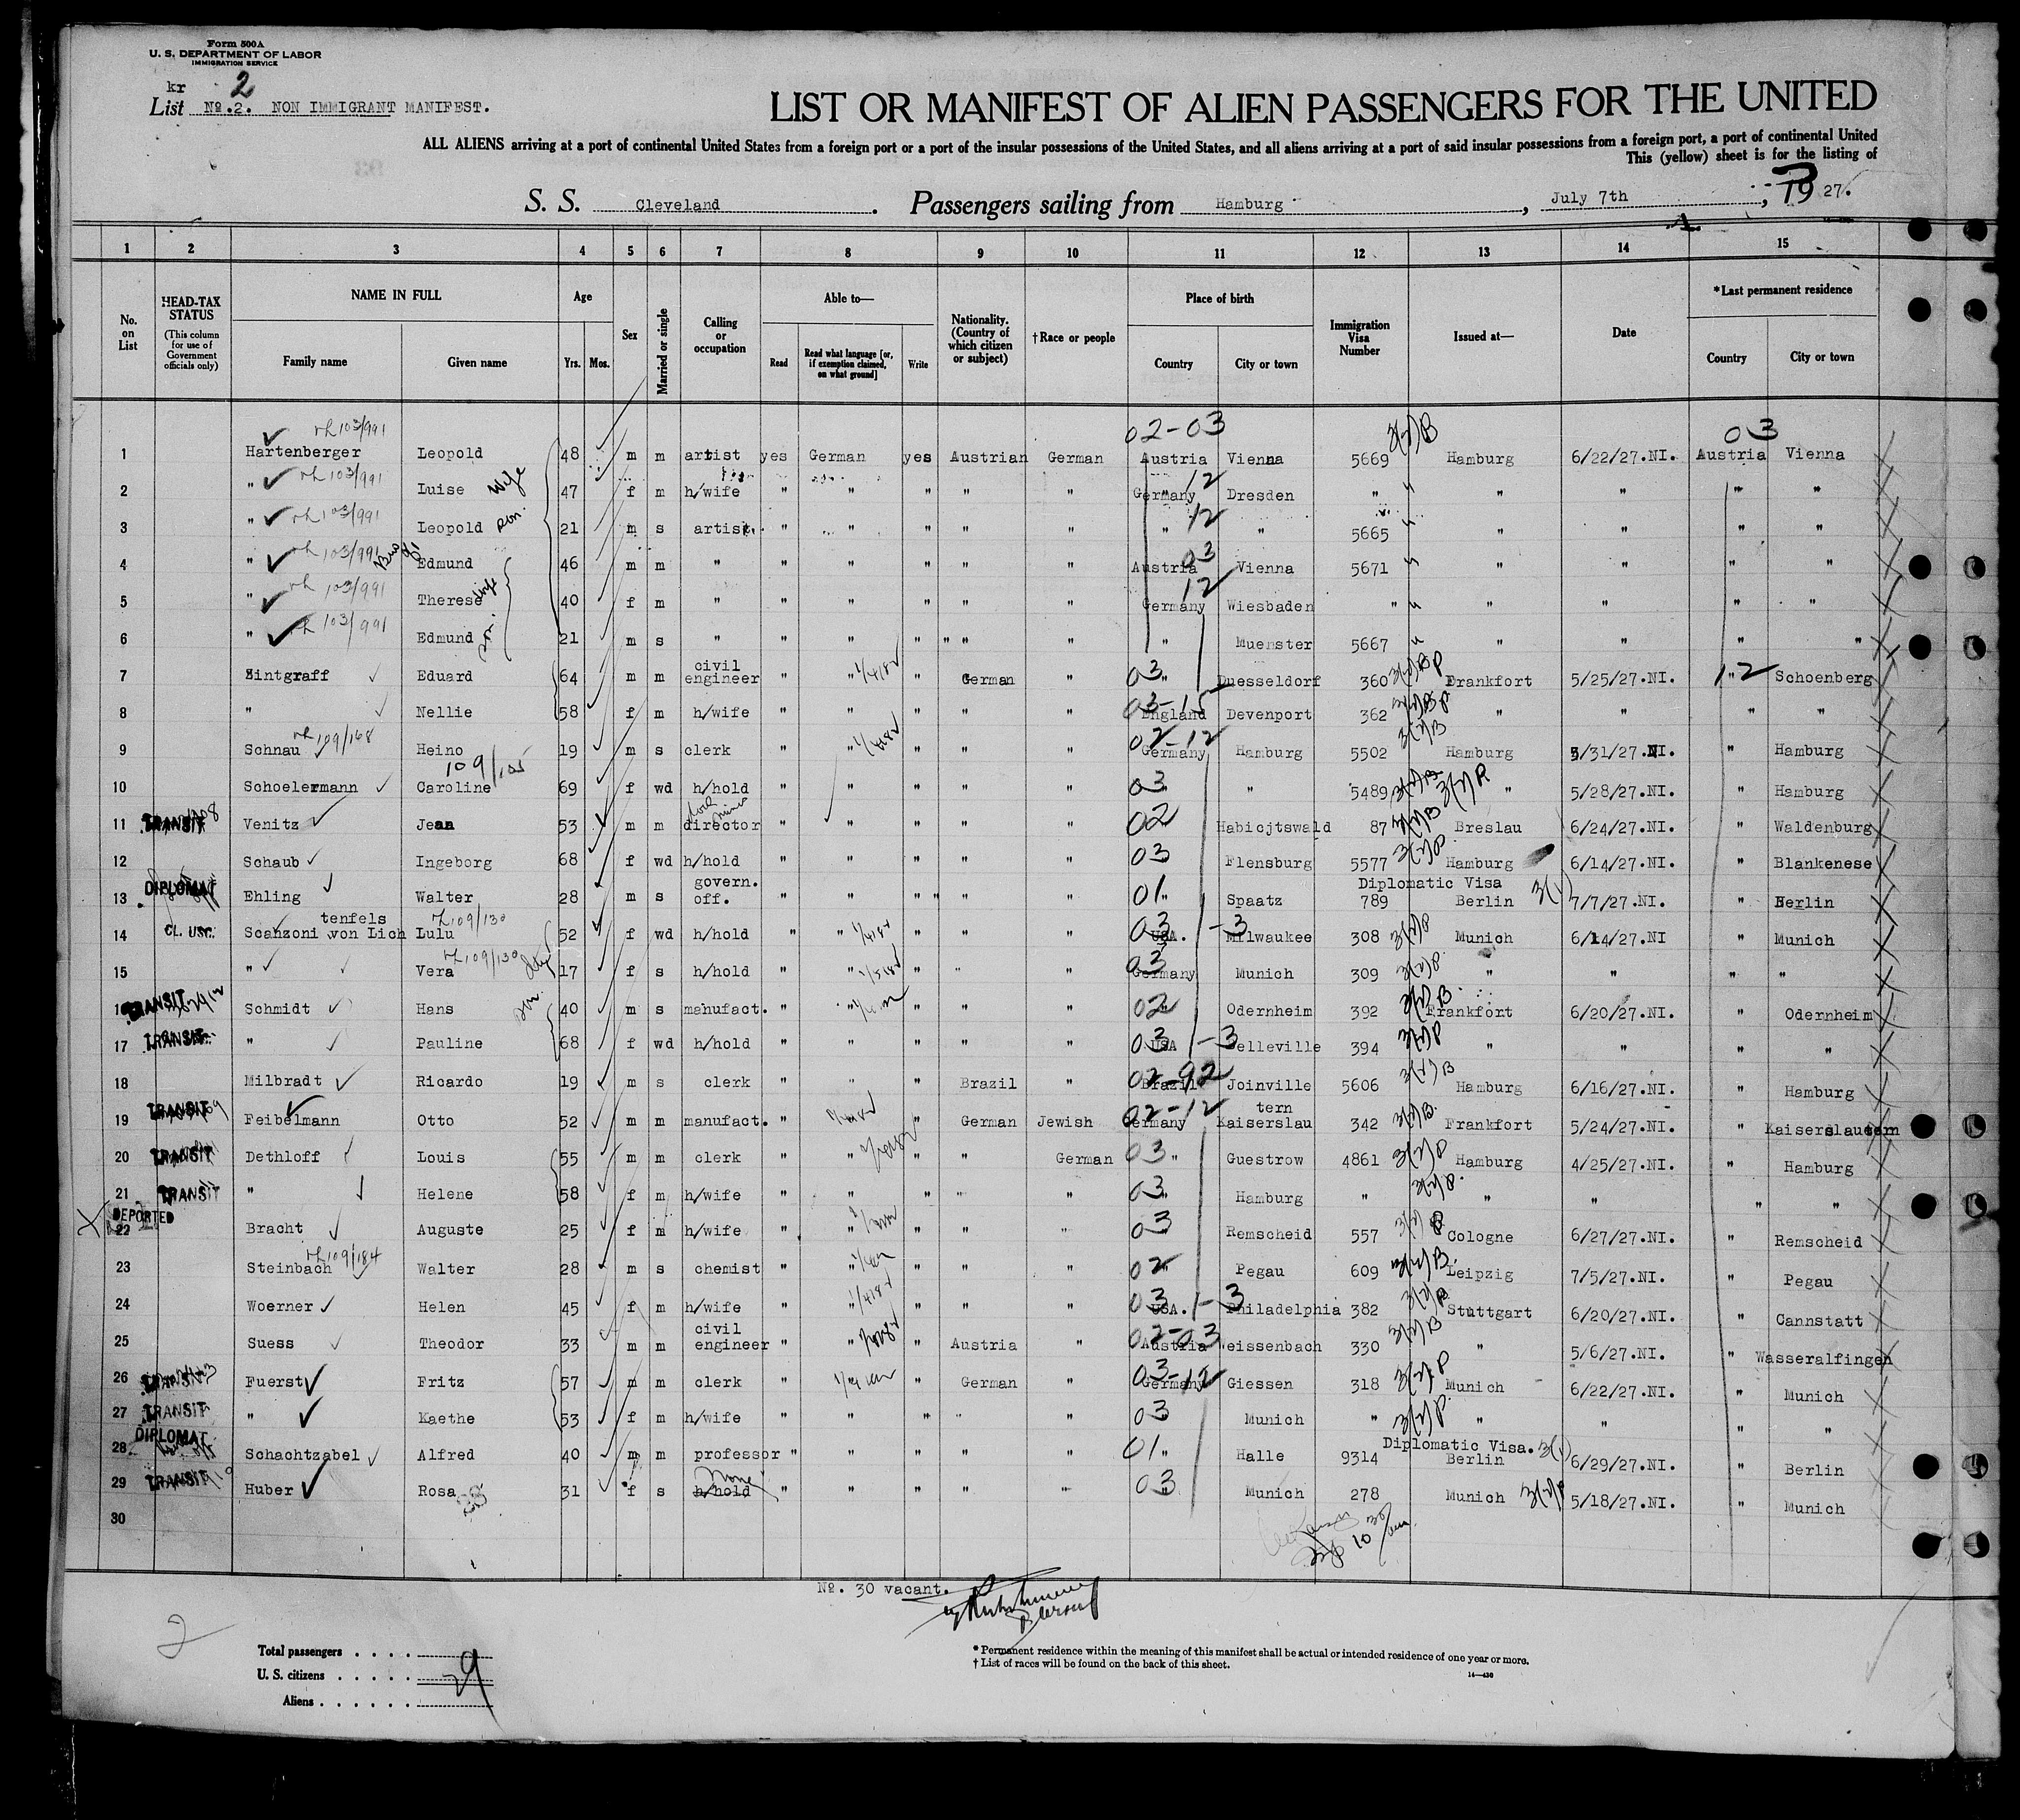 Form 500A
U. S. DEPARTMENT OF LABOR
IMMIGRATION SERVICE
kr 2
List No.2. NON IMMIGRANT MANIFEST.
LIST OR MANIFEST OF ALIEN PASSENGERS FOR THE UNITED
ALL ALIENS arriving at a port of continental United States from a foreign port or a port of the insular possessions of the United States, and all aliens arriving at a port of said insular possessions from a foreign port, a port of continental United
This (yellow) sheet is for the listing of
S. S. Cleveland. Passengers sailing from Hamburg, July 7th, 1927.
1 2 3 4 5 6 7 8 9 10 11 12 13 14 15
No. on List
HEAD-TAX STATUS (This column for use of Government officials only)
NAME IN FULL Family name Given name
Age Yrs. Mos.
Sex
Married or single
Calling or occupation
Able to— Read Read what language [or, if exemption claimed, on what ground] Write
Nationality. (Country of which citizen or subject)
†Race or people
Place of birth Country City or town
Immigration Visa Number
Issued at—
Date
*Last permanent residence Country City or town
02-03 3(2)B 03
1 Hartenberger rh 103/991 Leopold 48 m m artist yes German yes Austrian German Austria Vienna 5669 Hamburg 6/22/27.NI. Austria Vienna
2 " rh 103/991 Luise wife 47 f m h/wife " " " " " Germany 12 Dresden " " " " " "
3 " rh 103/991 Leopold son. 21 m s artist. " " " " " " 12 " 5665 " " " " "
4 " rh 103/991 Edmund 46 m m " " " " " " Austria 03 Vienna 5671 " " " " "
5 " rh 103/991 Therese wife 40 f m " " " " " " Germany 12 Wiesbaden " " " " " "
6 " rh 103/991 Edmund son. 21 m s " " " " " " " Muenster 5667 " " " " "
7 Zintgraff Eduard 64 m m civil engineer " " " German " 03 " Duesseldorf 360 Frankfort 5/25/27.NI. 12 " Schoenberg
8 " Nellie 58 f m h/wife " " " " " 03-15 England Devenport 362 " " " "
9 Schnau rh 109/168 Heino 19 m s clerk " " " " " 02-12 Germany Hamburg 5502 3(2)B Hamburg 5/31/27.NI. " Hamburg
10 Schoelermann Caroline 69 f wd h/hold " " " " " 03 " " 5489 " 5/28/27.NI. " Hamburg
11 TRANSIT Venitz Jean 53 m m director " " " " " 02 Habicjtswald 87 3(2)B Breslau 6/24/27.NI. " Waldenburg
12 Schaub Ingeborg 68 f wd h/hold " " " " " 03 Flensburg 5577 3(2)P Hamburg 6/14/27.NI. " Blankenese
13 DIPLOMAT Ehling Walter 28 m s govern. off. " " " " " 01 " Spaatz Diplomatic Visa 789 Berlin 3(1) 7/7/27.NI. " Berlin
14 CL. USC. Scanzoni von Lichtenfels rh 109/130 Lulu 52 f wd h/hold " " " " " 03 USA. 1-3 Milwaukee 308 3(2)P Munich 6/14/27.NI " Munich
15 " rh 109/130 Vera 17 f s h/hold " " " " " 03 Germany Munich 309 3(2)P. " " " "
16 TRANSIT Schmidt Hans son. 40 m s manufact. " " " " " 02 Odernheim 392 3(2)B. Frankfort 6/20/27.NI. " Odernheim
17 TRANSIT " Pauline 68 f wd h/hold " " " " " 03 USA 1-3 Belleville 394 3(2)P " " " "
18 Milbradt Ricardo 19 m s clerk " " " Brazil " 02-92 Brazil Joinville 5606 3(2)B Hamburg 6/16/27.NI. " Hamburg
19 TRANSIT Feibelmann Otto 52 m m manufact. " " German Jewish 02-12 Germany Kaiserslautern 342 3(2)B. Frankfort 5/24/27.NI. " Kaiserslautern
20 TRANSIT Dethloff Louis 55 m m clerk " " " " German 03 " Guestrow 4861 3(2)P Hamburg 4/25/27.NI. " Hamburg
21 TRANSIT " Helene 58 f m h/wife " " " " " 03 Hamburg " 3(2)P. " " " "
22 DEPORTED Bracht Auguste 25 f m h/wife " " " " " 03 Remscheid 557 Cologne 6/27/27.NI. " Remscheid
23 Steinbach rh 109/184 Walter 28 m s chemist " " " " " 02 Pegau 609 3(2)B. Leipzig 7/5/27.NI. " Pegau
24 Woerner Helen 45 f m h/wife " " " " " 03 USA. 1-3 Philadelphia 382 Stuttgart 6/20/27.NI. " Cannstatt
25 Suess Theodor 33 m m civil engineer " " " Austria " 02-03 Austria Weissenbach 330 3(2)B " 5/6/27.NI. " Wasseralfingen
26 TRANSIT Fuerst Fritz 57 m m clerk " " German " 03-12 Germany Giessen 318 3(2)P Munich 6/22/27.NI. " Munich
27 TRANSIT " Kaethe 53 f m h/wife " " " " " 03 Munich " 3(2)P. " " " "
28 DIPLOMAT Schachtzabel Alfred 40 m m professor " " " " " 01 " Halle 9314 Diplomatic Visa. Berlin 3(1) 6/29/27.NI. " Berlin
29 TRANSIT Huber Rosa 31 f s h/hold None " " " " " 03 Munich 278 Munich 3(2)P 5/18/27.NI. " Munich
30
No. 30 vacant.
2
Total passengers . . . .
U. S. citizens . . . . . 29
Aliens . . . . . .
* Permanent residence within the meaning of this manifest shall be actual or intended residence of one year or more.
† List of races will be found on the back of this sheet.
14—430